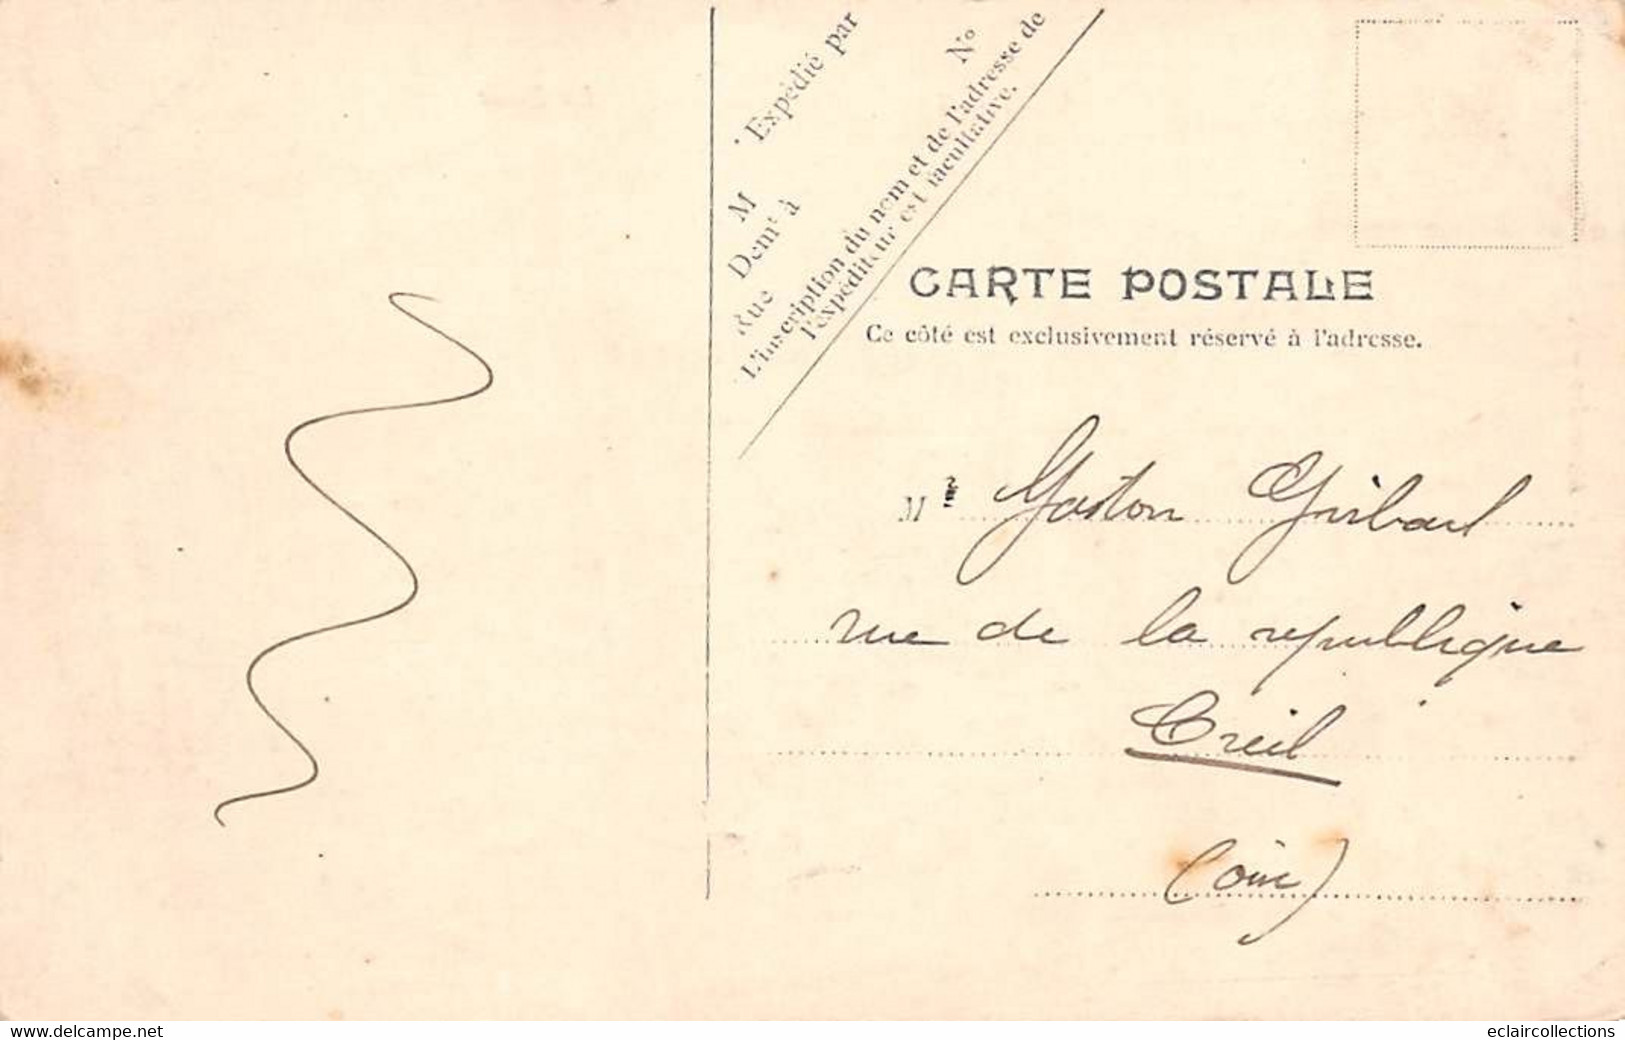 Expédié par
M
Demt à
Rue
N°
L'inscription du nom et de l'adresse de
l'expéditeur est facultative.
CARTE POSTALE
Ce côté est exclusivement réservé à l'adresse.
M Gaston
rue de la republique
Creil
(oise)
www.delcampe.net
eclaircollections